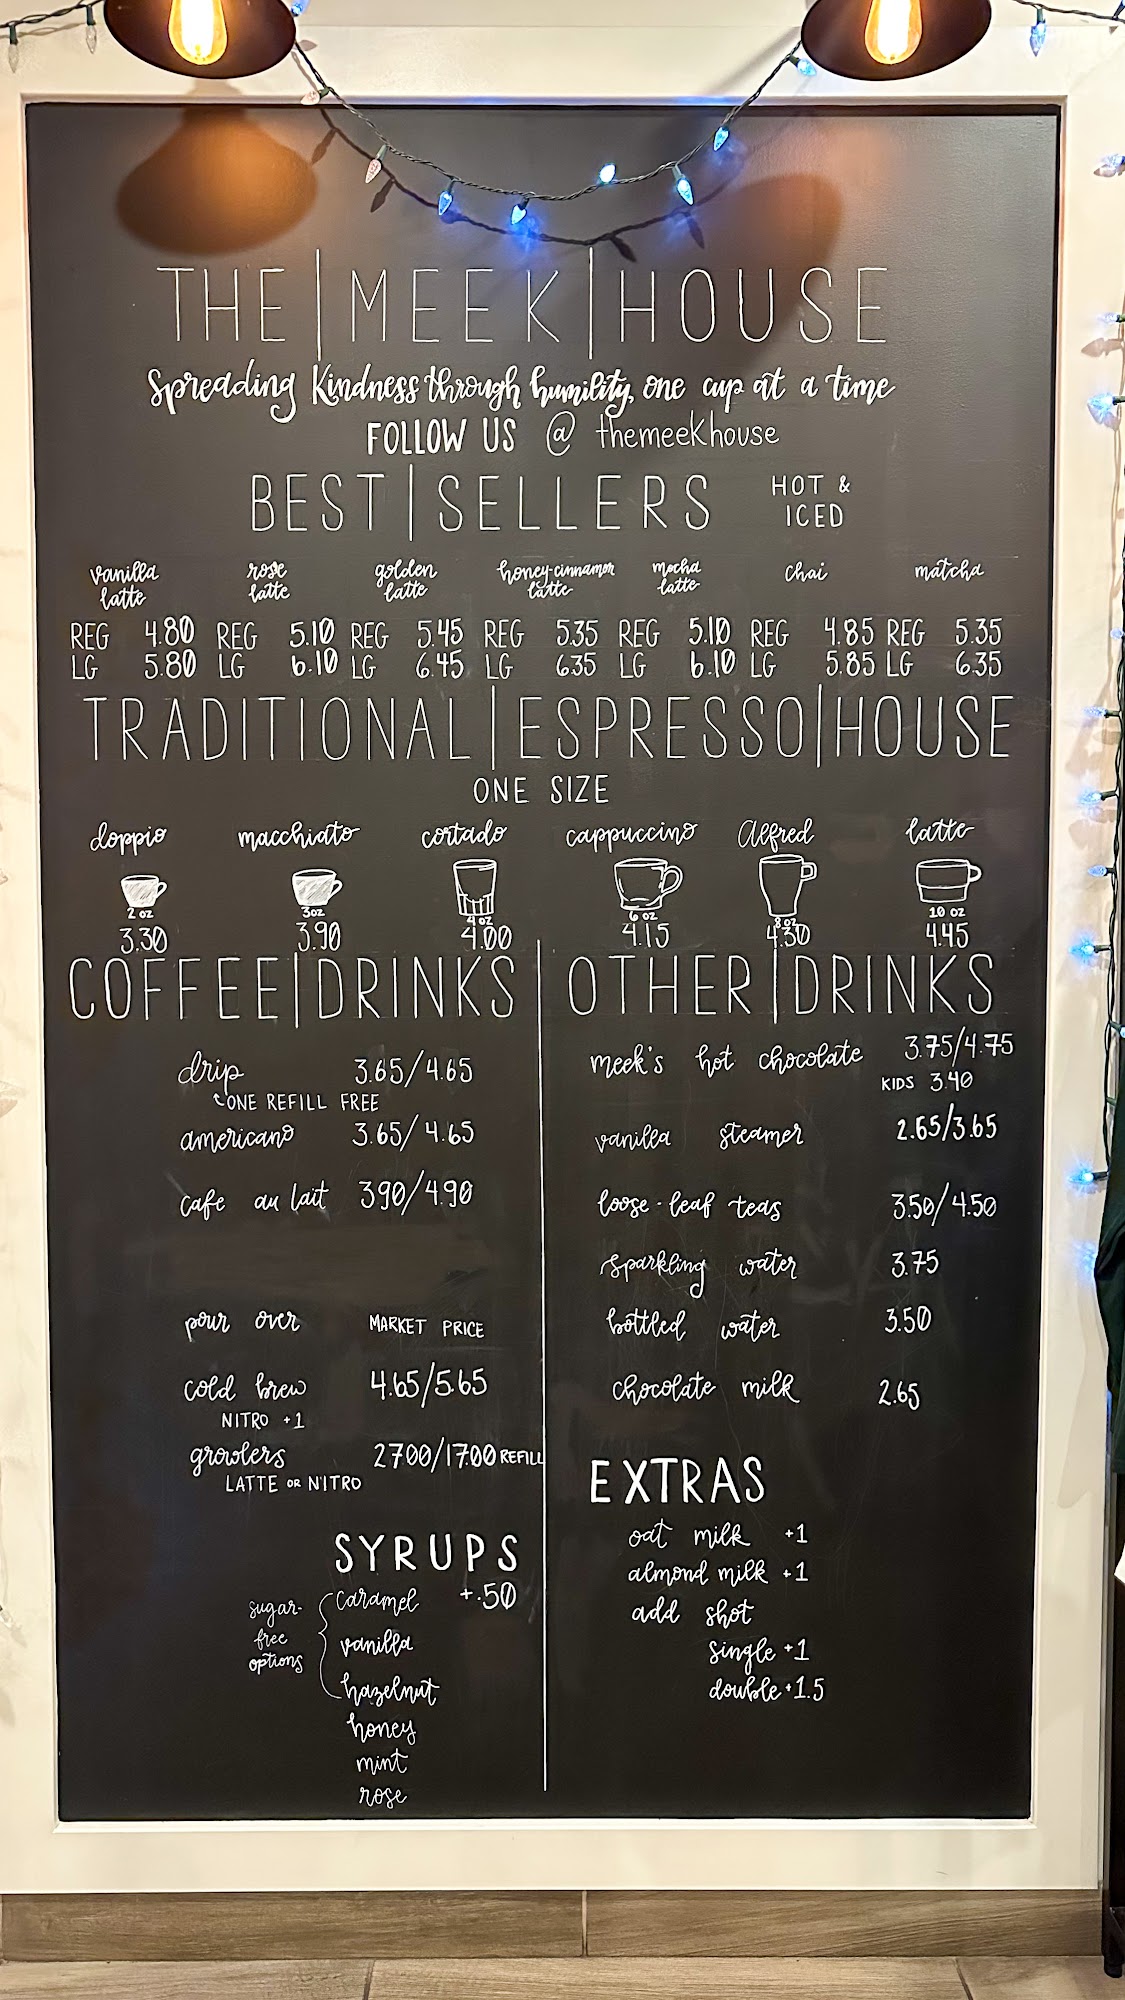 THE|MEEK|HOUSE
Spreading Kindness through humility, one cup at a time
FOLLOW US @ themeekhouse
BEST|SELLERS HOT & ICED
vanilla latte rose latte golden latte honey-cinnamon latte mocha latte chai matcha
REG 4.80 REG 5.10 REG 5.45 REG 5.35 REG 5.10 REG 4.85 REG 5.35
LG 5.80 LG 6.10 LG 6.45 LG 6.35 LG 6.10 LG 5.85 LG 6.35
TRADITIONAL|ESPRESSO|HOUSE
ONE SIZE
doppio macchiato cortado cappuccino Alfred latte
2 oz 3oz 4 oz 6 oz 8 oz 10 oz
3.30 3.90 4.00 4.15 4.30 4.45
COFFEE|DRINKS
drip 3.65/4.65
ONE REFILL FREE
americano 3.65/4.65
cafe au lait 3.90/4.90
pour over MARKET PRICE
cold brew 4.65/5.65
NITRO +1
growlers 27.00/17.00 REFILL
LATTE OR NITRO
SYRUPS
caramel +.50
vanilla
hazelnut
sugar-
free
options
honey
mint
rose
OTHER|DRINKS
meek's hot chocolate 3.75/4.75
KIDS 3.40
vanilla steamer 2.65/3.65
loose-leaf teas 3.50/4.50
sparkling water 3.75
bottled water 3.50
chocolate milk 2.65
EXTRAS
oat milk +1
almond milk +1
add shot
single +1
double +1.5